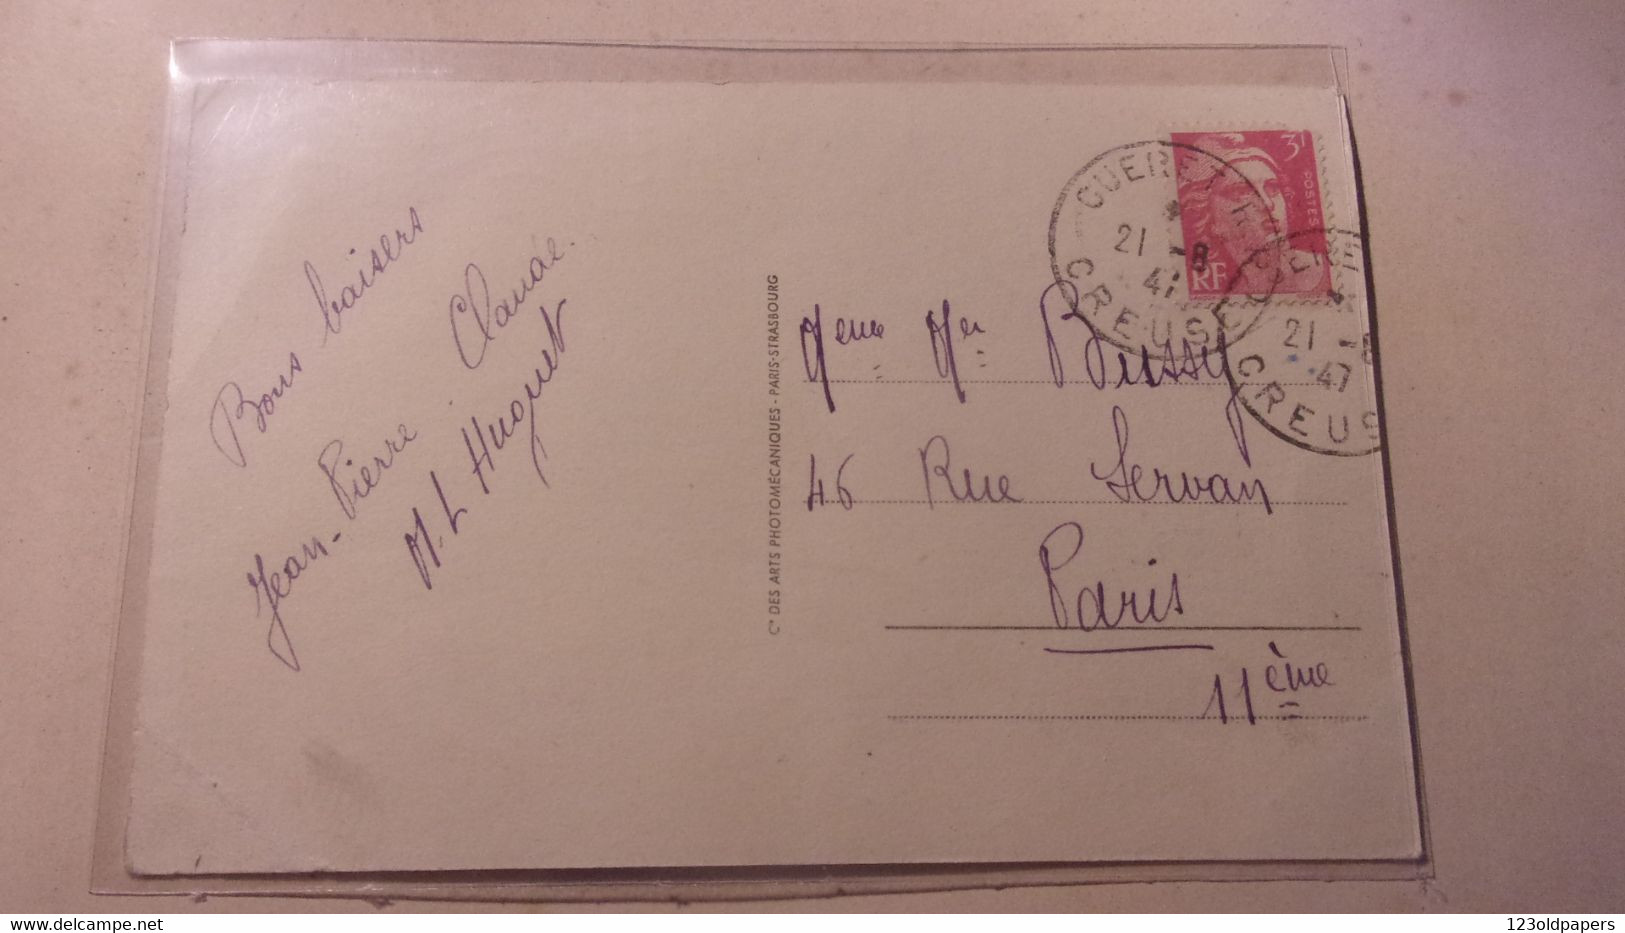 Bons baisers
Jean-Pierre Claude.
M. L Huguet
Cie DES ARTS PHOTOMÉCANIQUES - PARIS-STRASBOURG
3f
POSTES
RF
GUERET R.P.
21 -8
47
CREUSE
21 -8
47
CREUS
Meme Mer Bussy
46 Rue Servan
Paris
11ème
www.delcampe.net
123oldpapers